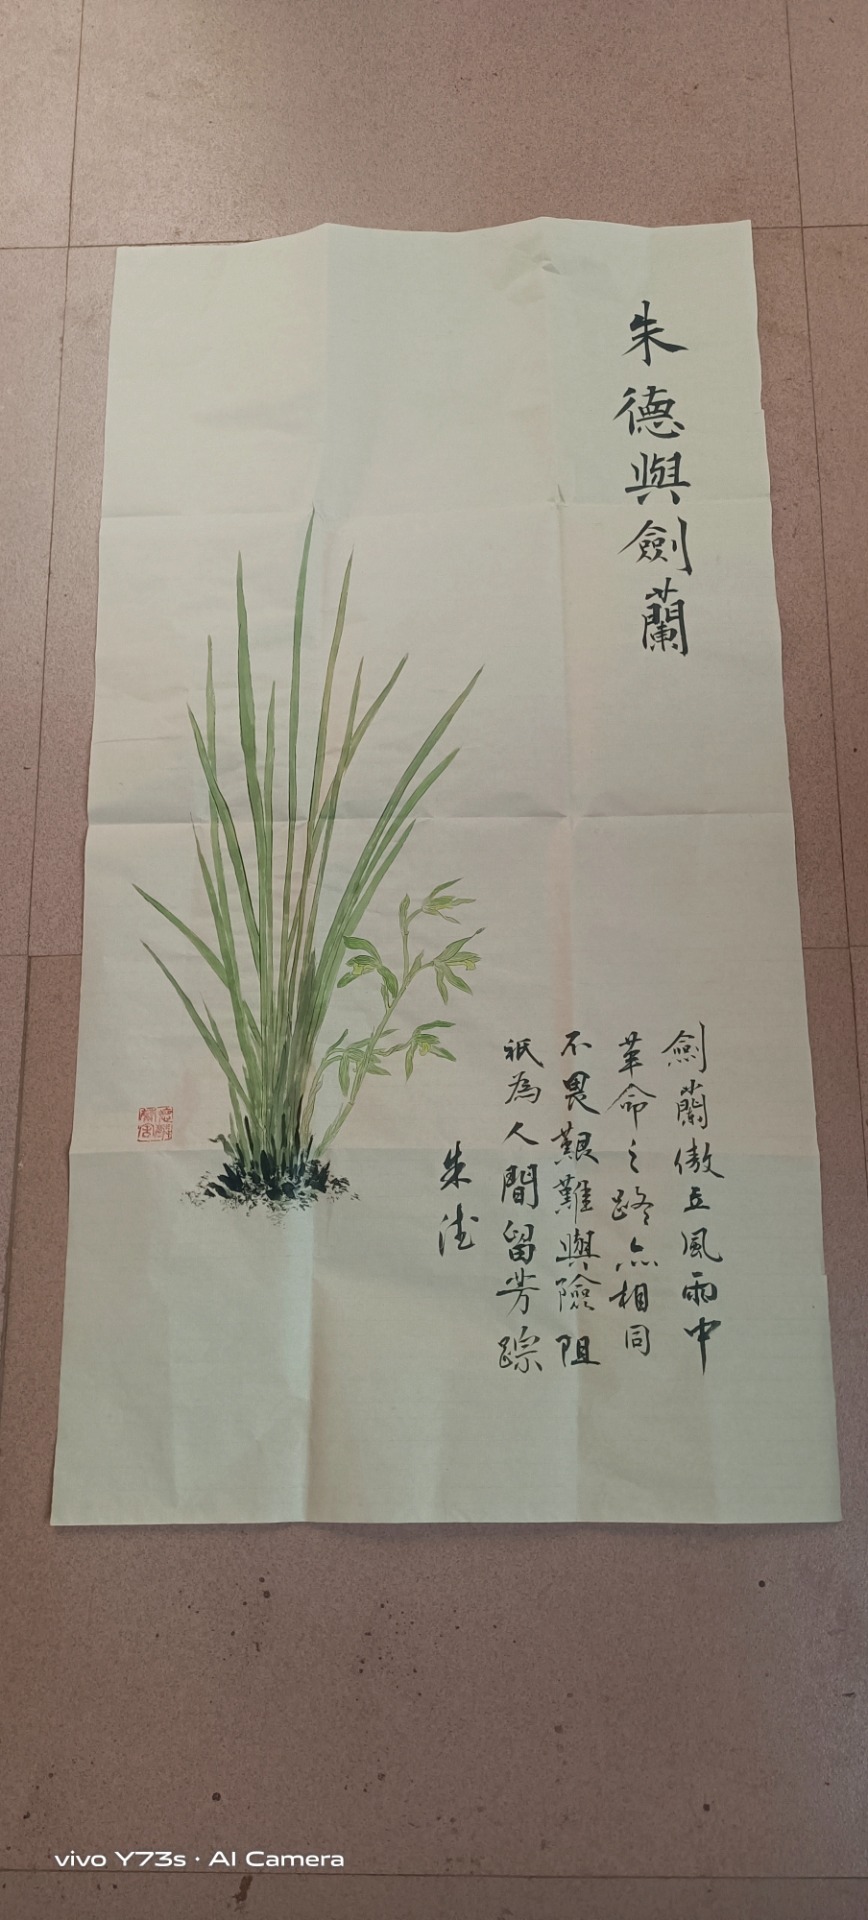 朱德與劍蘭
劍蘭傲立風雨中
革命之路亦相同
不畏艱難與險阻
祇為人間留芳踪
朱德
vivo Y73s · AI Camera